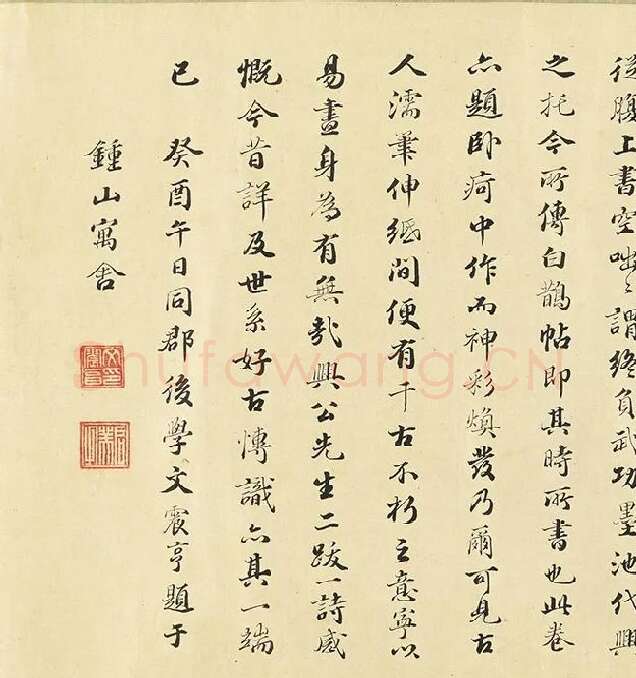 從腹上書空咄〻謂終負武功墨池代興
之托今所傳白鵲帖即其時所書也此卷
亦題卧疴中作而神彩煥發乃爾可見古
人濡筆伸紙間便有千古不朽之意寧以
易晝身為有無哉興公先生二跋一詩感
慨今昔詳及世系好古慱識亦其一端
已 癸酉午日同郡後學文震亨題于
鍾山寓舍
Shufawang.CN